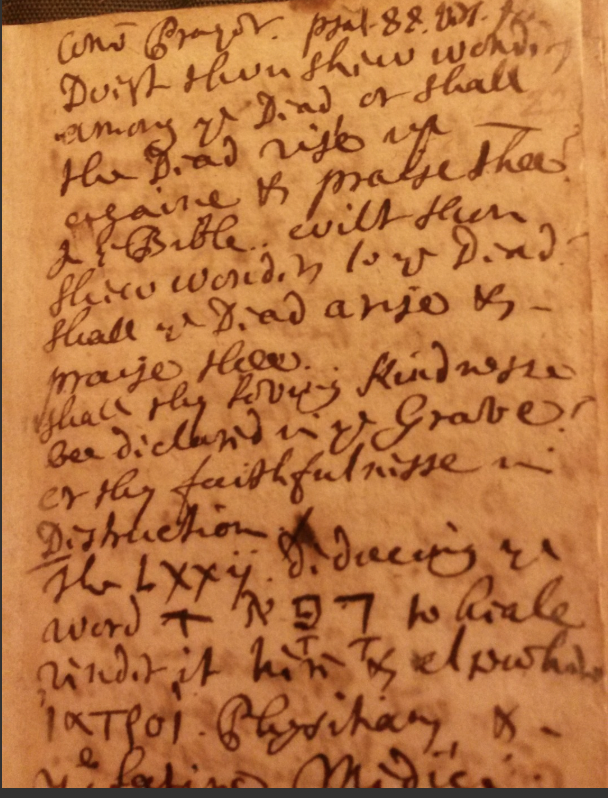 Com̄ Prayer. psal. 88. ver. 10
Doest thou shew wonders
among yᵉ Dead or shall
the Dead rise up
againe & praise thee?
In yᵉ Bible. wilt thou
shew wonders to yᵉ Dead
shall yᵉ Dead arise & -
praise thee.
shall thy loving kindnesse
bee declared in yᵉ Grave?
or thy faithfulnesse in
Distruction
the LXXij. deducing yᵉ
word רפא to heale
render it here & elswhere
ἰατροὶ. Physitians & -
yᵉ Latine Medici